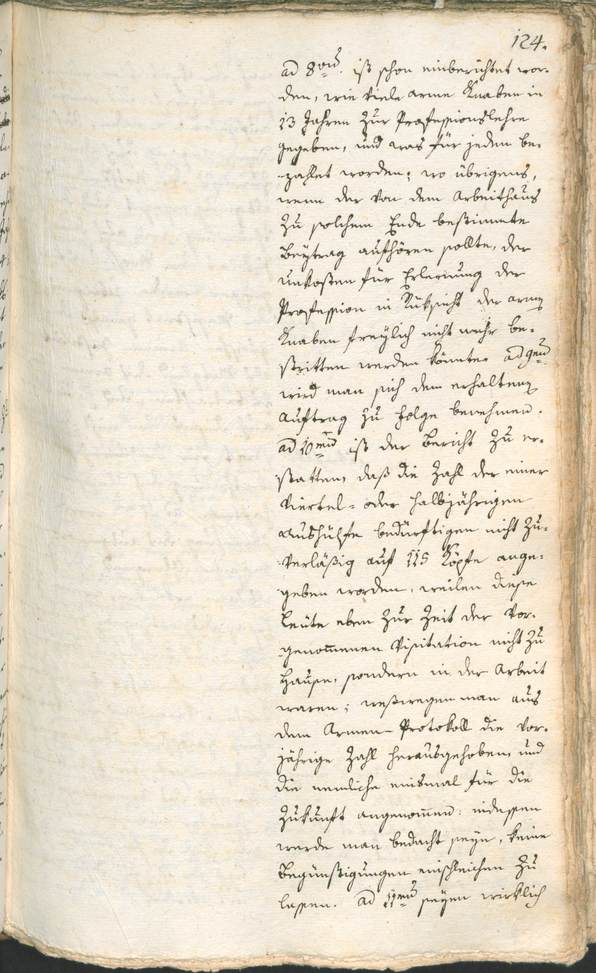 124.
ad 8vum. ist schon einberichtet wor-
den, wie viele arme Knaben in
13 Jahren zur Professionslehre
gegeben, und was für jeden be-
zahlet worden; wo übrigens,
wenn der von dem Arbeithaus
zu solchem Ende bestimmte
Beytrag aufhören sollte, der
unkosten für Erlernung der
Profession in Rüksicht der armen
Knaben freylich nicht mehr be-
stritten werden könnte. ad 9num
wird man sich dem erhaltenen
Auftrag zu folge benehmen.
ad 10mum ist der Bericht zu er-
statten, daß die Zahl der einer
Viertel- oder halbjährigen
Aushülfe bedürftigen nicht zu-
verläßig auf 115 Köpfe ange-
geben worden, weilen diese
Leüte eben zur Zeit der vor-
genommenen Visitation nicht zu
Hause, sondern in der Arbeit
waren; weßwegen man aus
dem Armen-Protokoll die vor-
jährige Zahl herausgehoben, und
die nemliche einsmal für die
Zukunft angenommen: indessen
werde man bedacht seyn, keine
Begünstigungen einschleichen zu
lassen. ad 11mum seyen wirklich